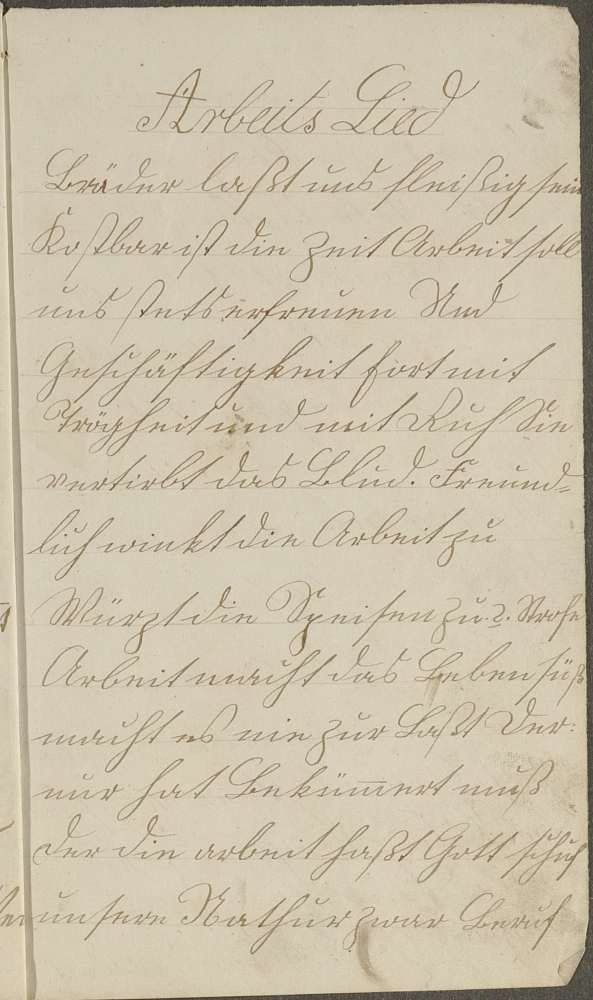 Arbeits Lied
Brüder laßt uns fleißig sein
Kostbar ist die Zeit Arbeit soll
uns stets erfreuen Und
Geschäftigkeit fort mit
Trägheit und mit Ruh Sie
vertirbt das Blud. Freund=
lich winkt die Arbeit zu
Würzt die Speisen zu. 2. Strofe
Arbeit macht das Leben süß
macht es nie zur Laßt Der:
nur hat Bekümmert muß
der die arbeit haßt Gott schuf
unsere Nathur zwar Beruf